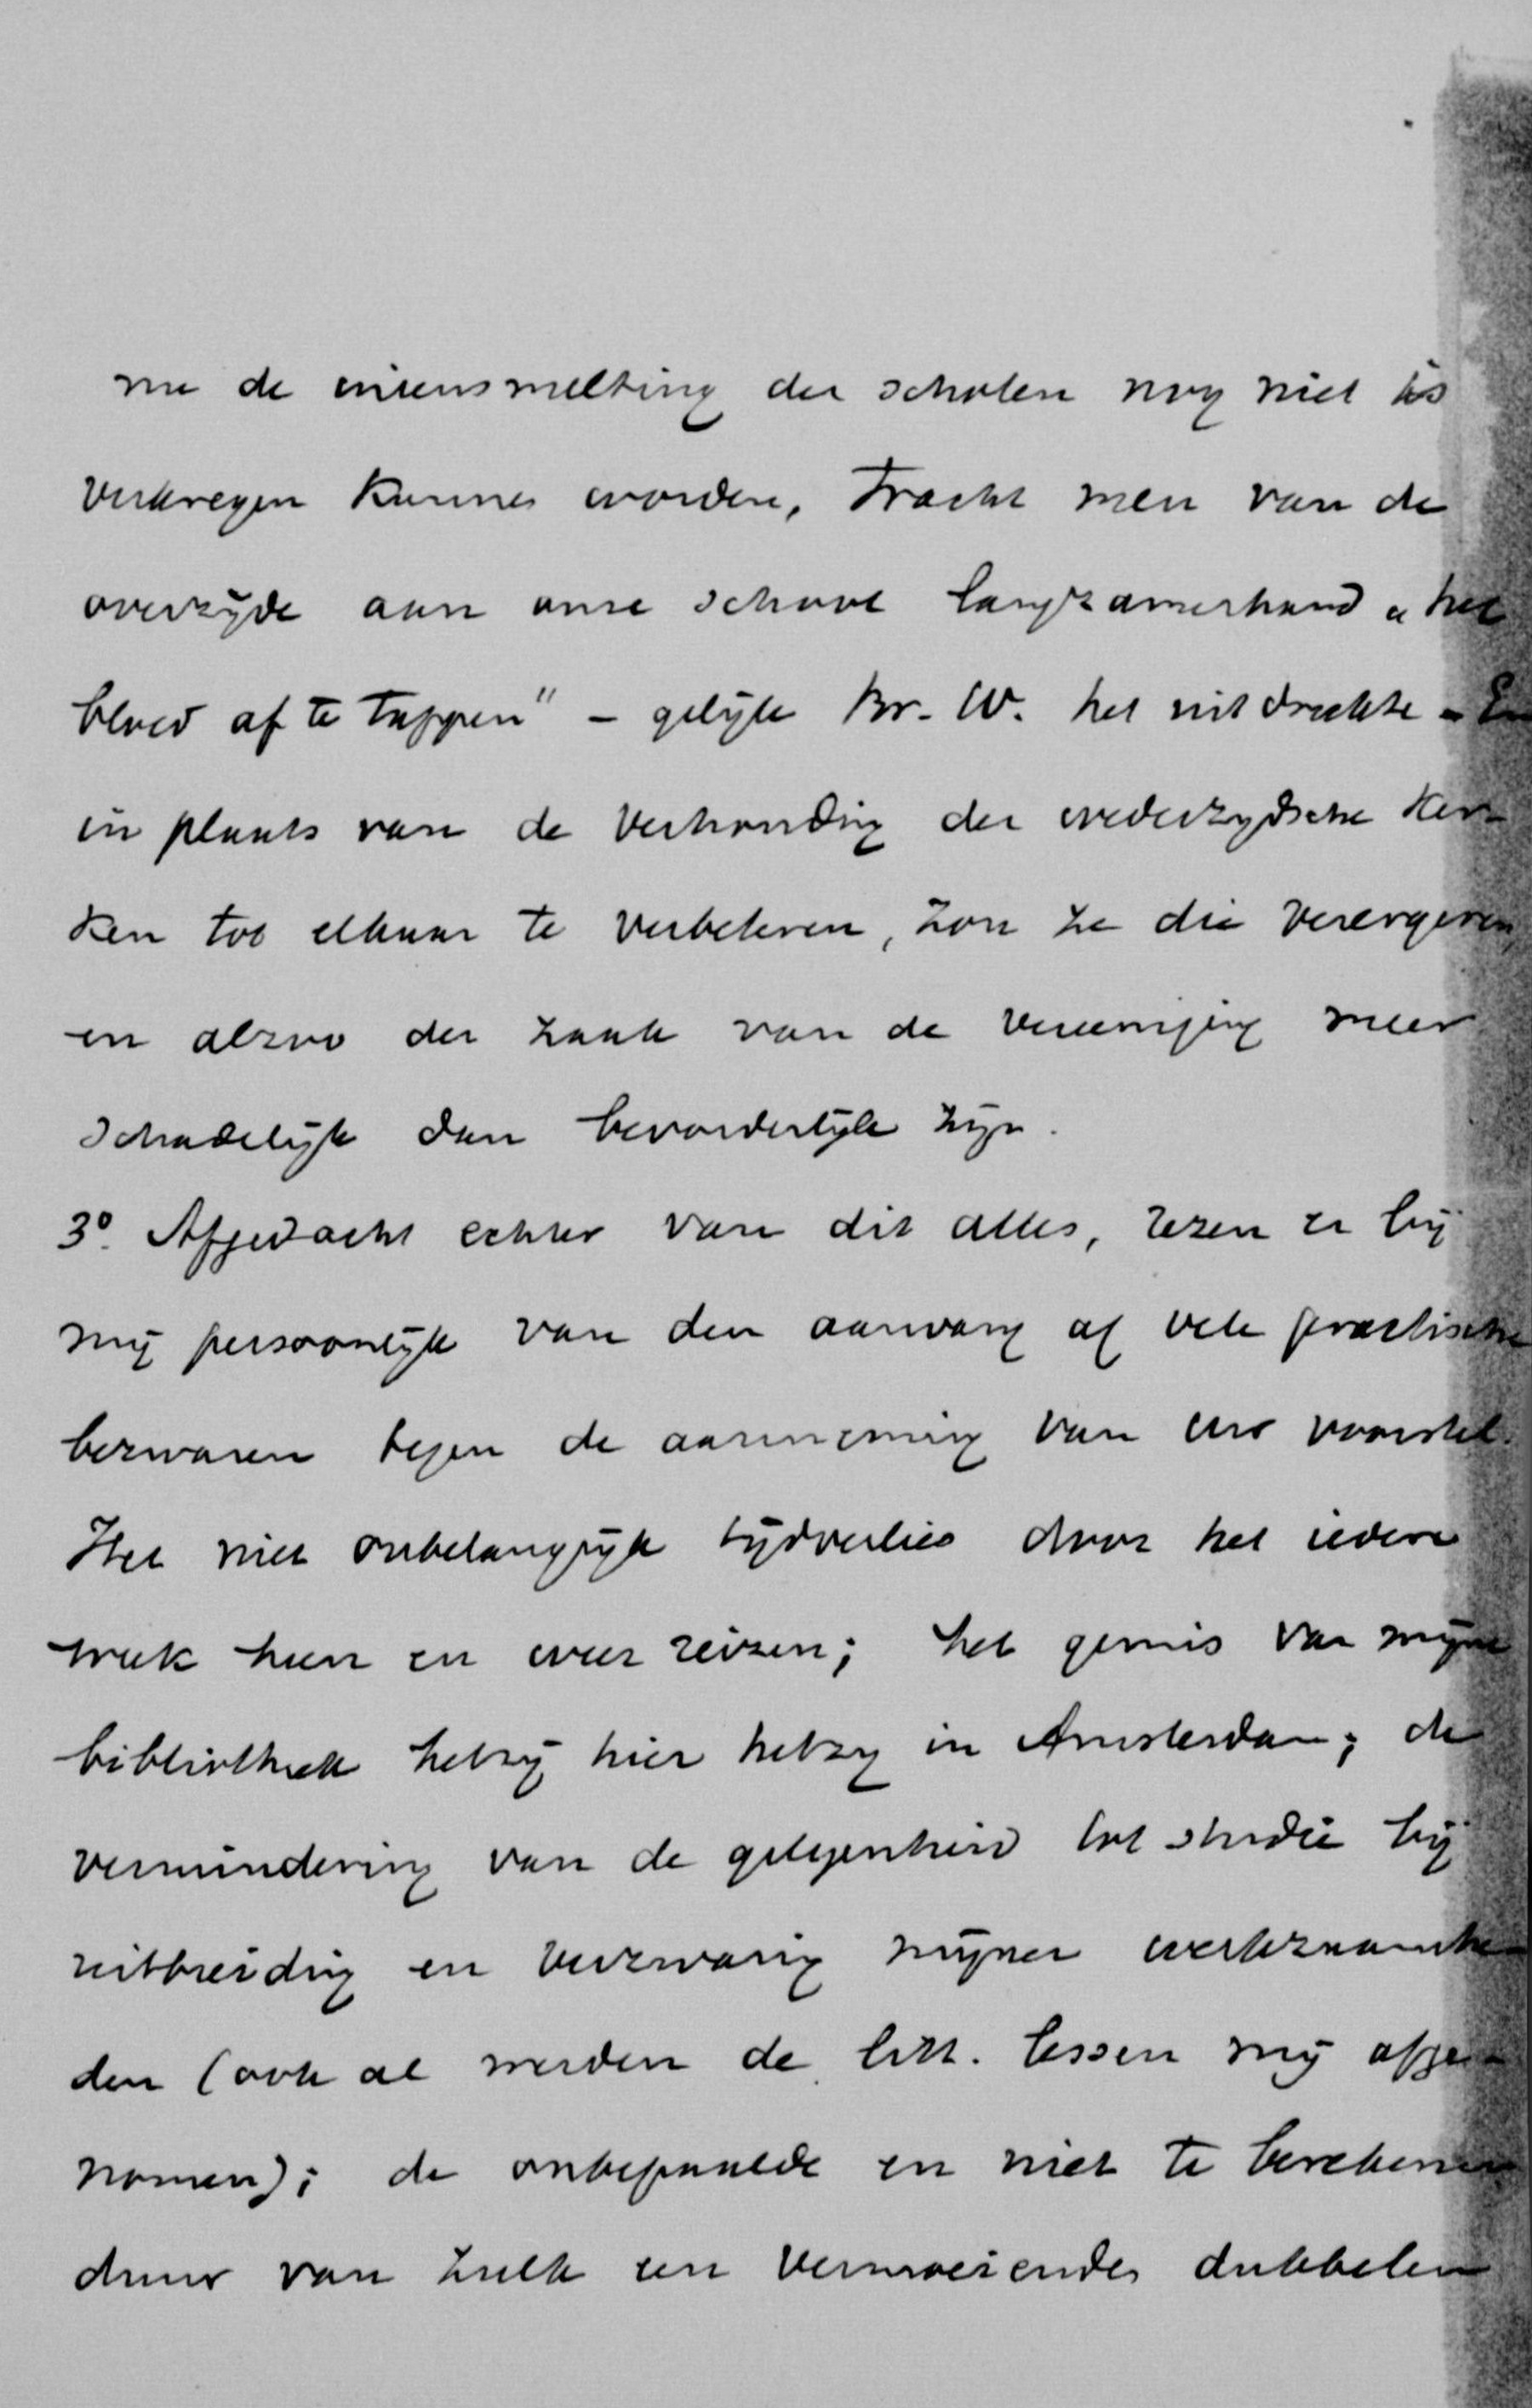 nu de ineensmelting der scholen nog niet is
verkregen kunnen worden, tracht men van de
overzyde aan onze school langzamerhand „het
bloed af te tappen" – gelyk Br. W. het uitdrukte – En
in plaats van de verhouding der wederzydsche ker-
ken tot elkaar te verbeteren, zou ze die verergeren,
en alzoo der zaak van de vereeniging meer
schadelyk dan bevorderlyk zyn.
3o. Afgedacht echter van dit alles, rezen er bÿ
mÿ persoonlÿk van den aanvang af vele practische
bezwaren tegen de aanneming van uw voorstel.
Het niet onbelangrÿk tÿdverlies door het iedere
week heen en weer reizen; het gemis van mÿne
bibliotheek hetzÿ hier hetzy in Amsterdam; de
vermindering van de gelegenheid tot studie bÿ
uitbreiding en verzwaring mÿner werkzaamhe-
den (ook al werden de litt. lessen mÿ afge-
nomen); de onbepaalde en niet te berekenen
duur van zulk een vermoeienden dubbelen